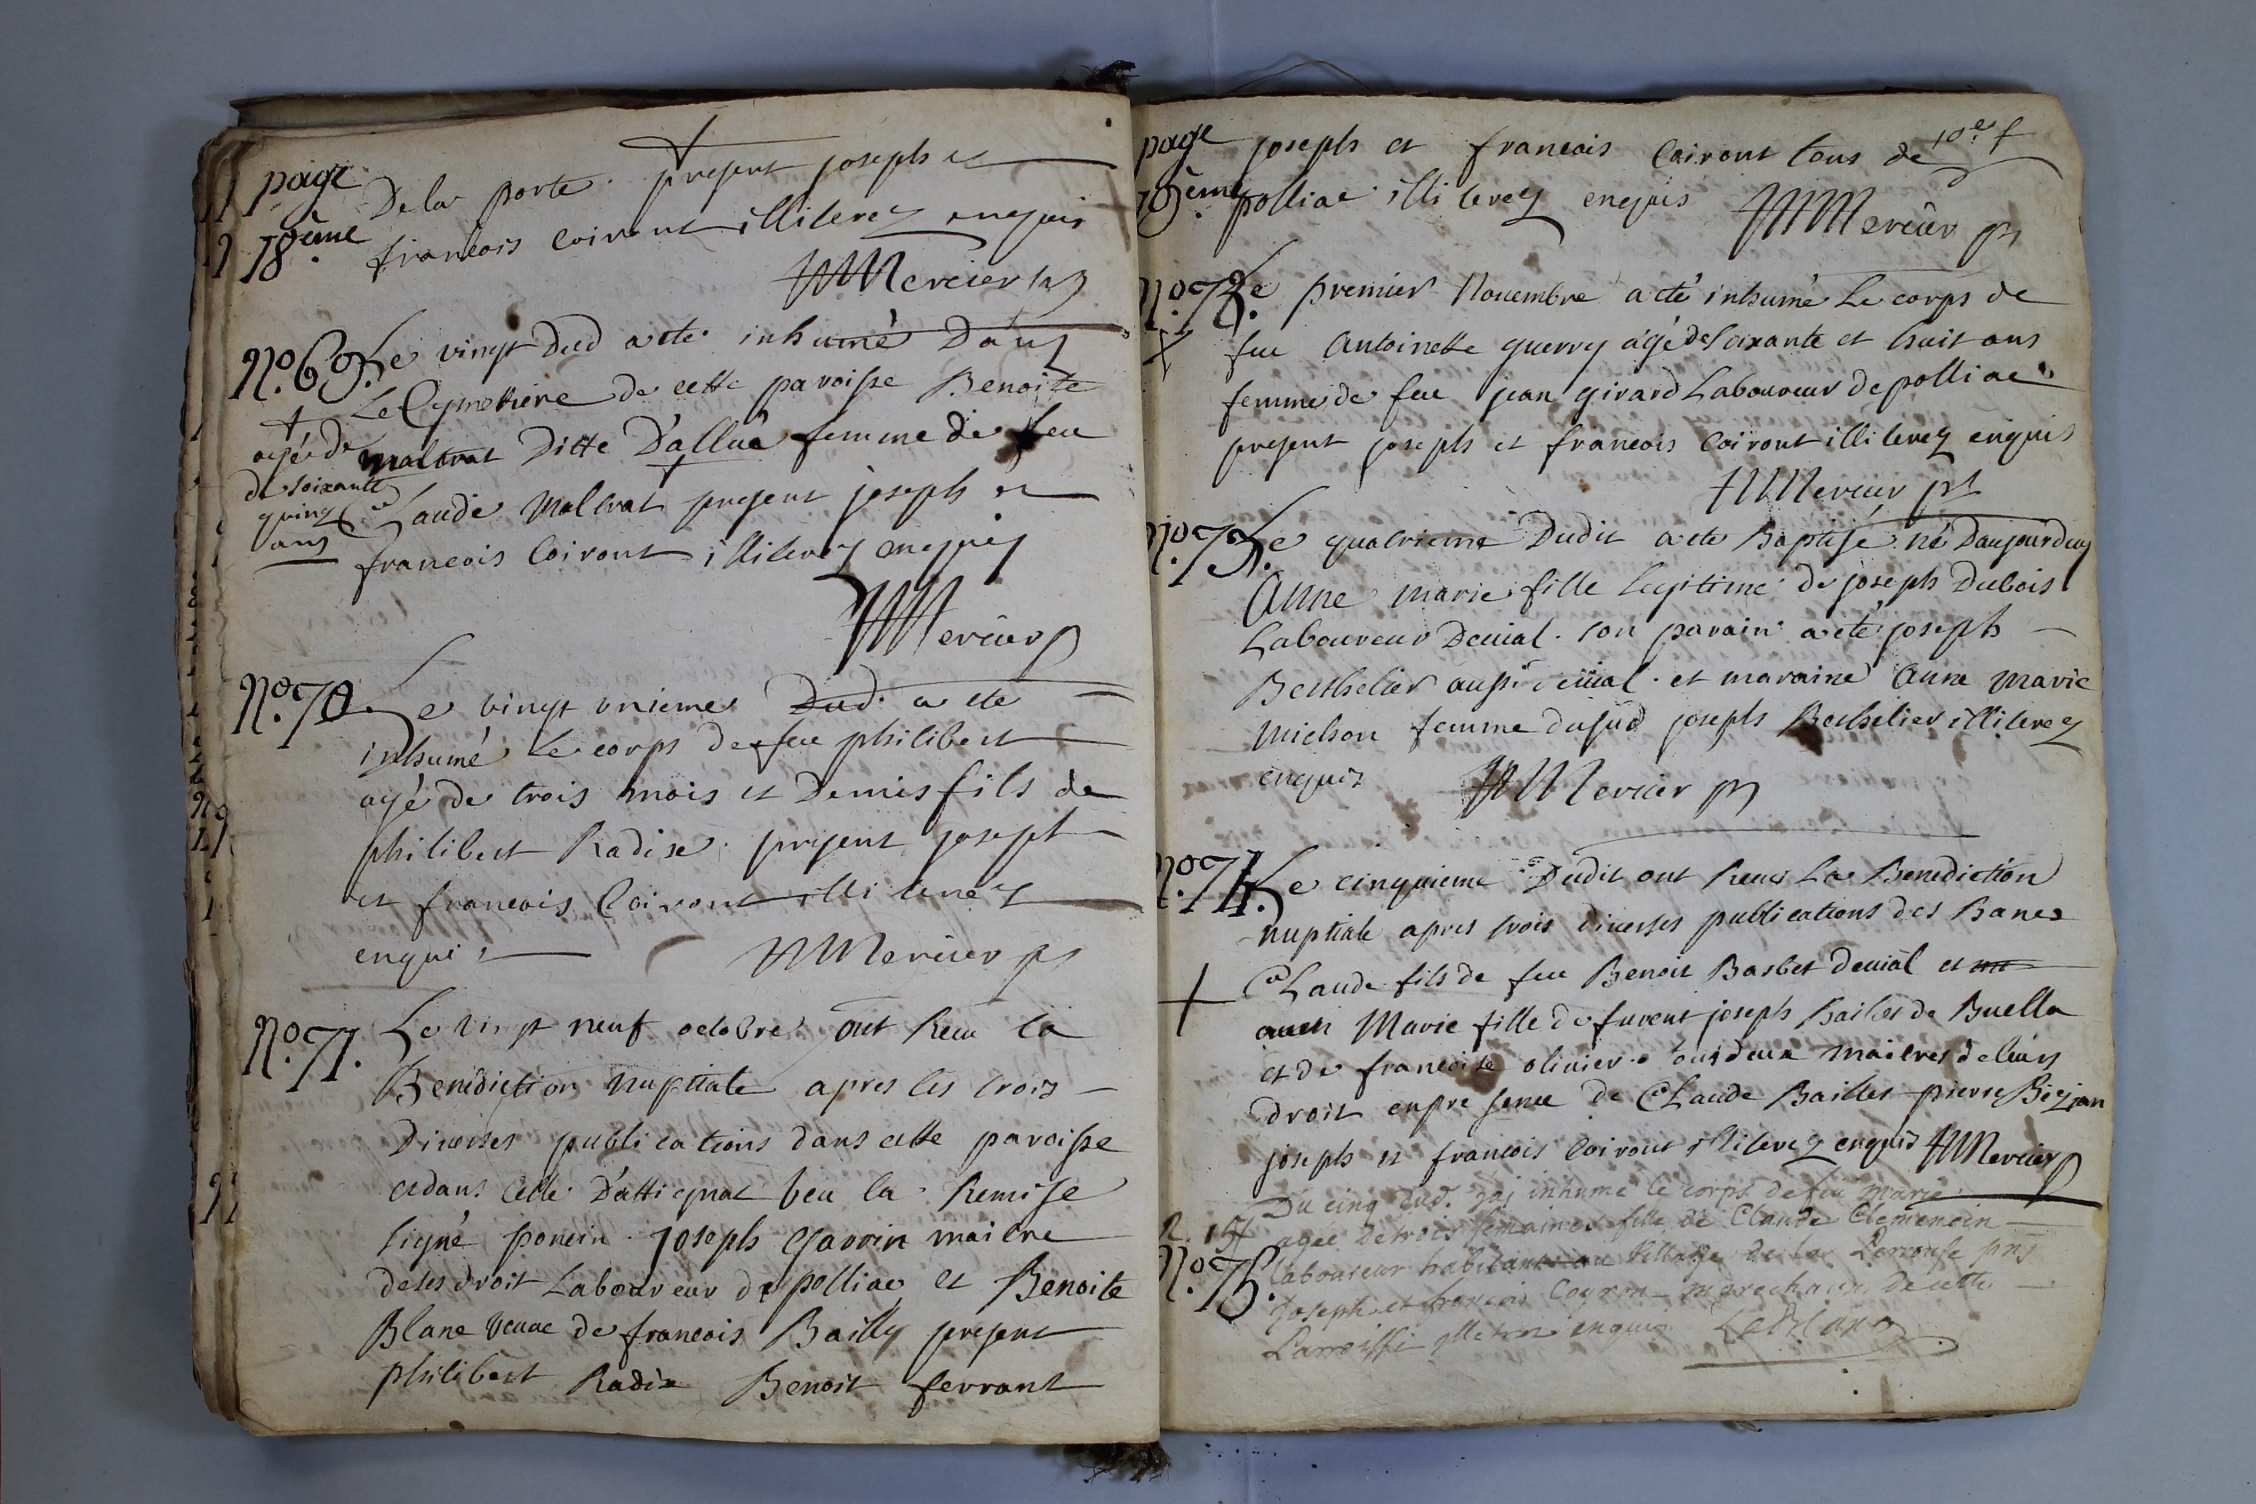 page
18eme
De la porte. present joseph et
francois Coiront illiterez enquis
Mercier
No. 69.
Le vingt dud a ete inhumé Dans
Le Cymettiere de cette paroisse Benoite
malvrat Ditte D'alluâ femme de feu
agée de
de soixante
quinz
ans
Claude Malvrat present joseph et
francois Coiront illiterez enquis
Mercier
No. 70.
Le vingt unieme Dud. a ete
inhumé le corps de feu philibert
agé de trois mois et Demis fils de
philibert Radix. present joseph
et francois Coiront illiterez
enquis
Mercier
No. 71.
Le vingt neuf octobre ont Receu la
Benediction nuptiale apres les trois
Diverses publications dans cette paroisse
et dans celle D'attignat veu la Remise
signé poncin. joseph Gavoin maitre
de ses droit Laboureur de polliac et Benoite
Blanc veuve de francois Bailly present
philibert Radix Benoit ferrant
page
19eme
joseph et francois Coiront tous de
polliac illiterez enquis
Mercier
No. 72.
Le premier Novembre a eté inhumé Le corps de
feu Antoinette guerry agé de soixante et huit ans
femme de feu jean girard Laboureur de polliac
present joseph et francois Coiront illiterez enquis
Mercier
No. 73.
Le quatrieme Dudit a ete Baptisé né Daujourduy
Anne marie fille Legitime de joseph Dubois
Laboureur Deuial. son parain a eté joseph
Berthelier aussi deuial. et maraine Anne Marie
Michon femme dusud joseph Berthelier illiterez
enquis
Mercier
No. 74.
Le cinquieme Dudit ont Receu La Benediction
nuptiale apres trois diverses publications des Bancs
Claude fils de feu Benoit Barbet deuial et
avec Marie fille de furent joseph Bailet de Buella
et de francoise olivier tous deux maitres de leurs
droit en presence de Claude Baillet pierre Bizjon
joseph et francois Coiront illiterez enquis Mercier
No. 75.
Du cinq dud. j'aj inhumé le corps de feu marie
agée de trois semaines fille de Claude Clemencin
laboureur habitant au village de la Perrouse pnts
Joseph et francois Coyron marechaux de cette
Parroisse enquis